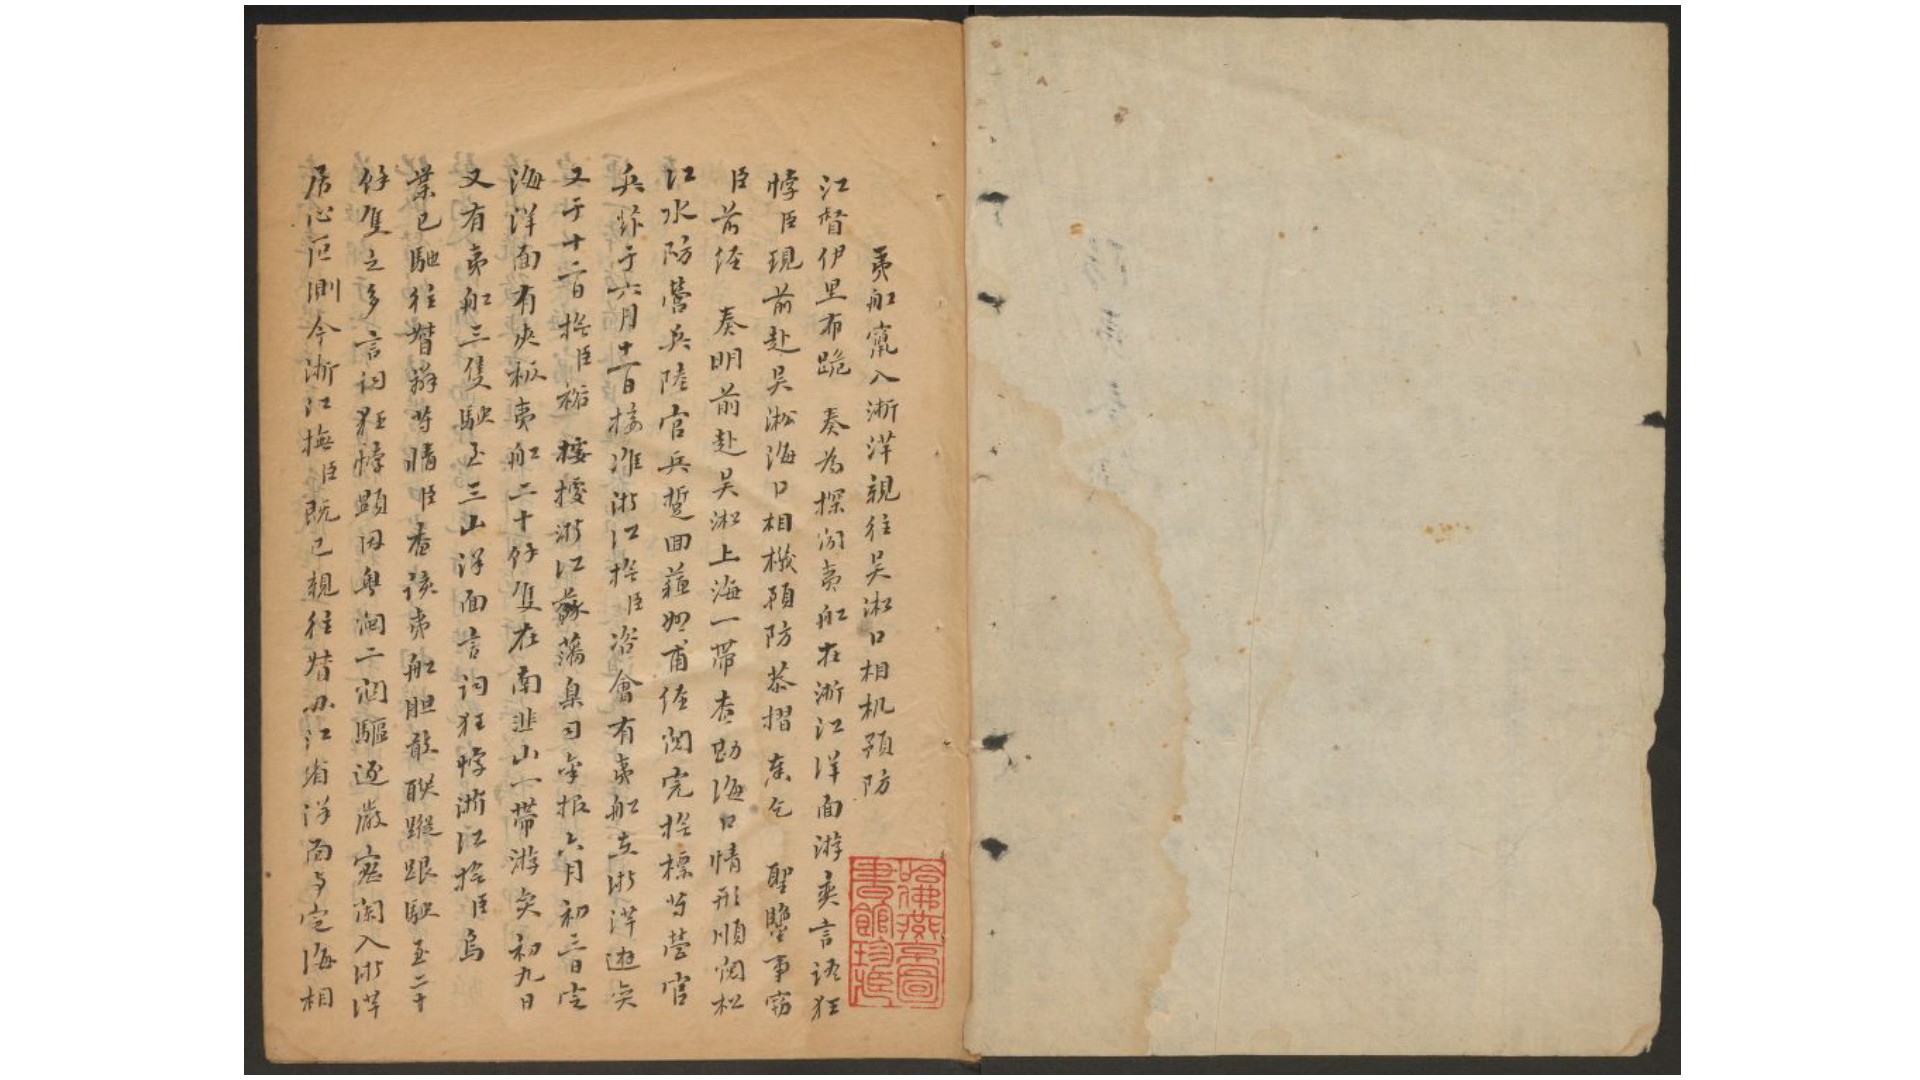 夷舡竄入浙洋親往吴淞口相机预防
江督伊里布跪 奏為探闻夷舡在浙江洋面游奕言語狂
悖臣現前赴吴淞海口相機預防恭摺 奏乞 聖鑒事窃
臣前経 奏明前赴吴淞上海一帶查勘海口情形順閲松
江水防營兵陸官兵蹔回蘓州甫経閲完撫標等營官
兵於于六月十一日接准浙江撫臣咨會有夷舡在浙洋遊奕
又于十二日撫臣裕接據浙江蘇藩臬司牟报六月初三日定
海洋面有夾板夷舡二十仔隻在南韭山一帶游奕初九日
又有夷舡三隻駛至三山洋面言词狂悖浙江撫臣烏
業已馳往督辦等情臣查该夷舡胆敢联踪跟駛至二十
仔隻之多言词狂悖顕因粤洞二闽驅逐嚴密闌入浙洋
居心叵測今浙江撫臣既已親往督办江省洋面与定海相
哈佛燕京圖
書館珍藏